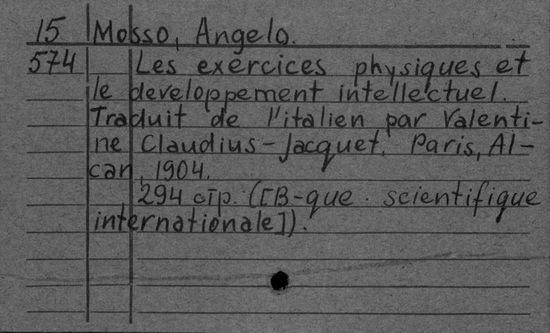 15 Mosso, Angelo.
574 Les exercices physiques et
le developpement intellectuel.
Traduit de l'italien par Valenti-
ne Claudius-Jacquet. Paris, Al-
can, 1904.
294 стр. ([B-que scientifique
internationale]).